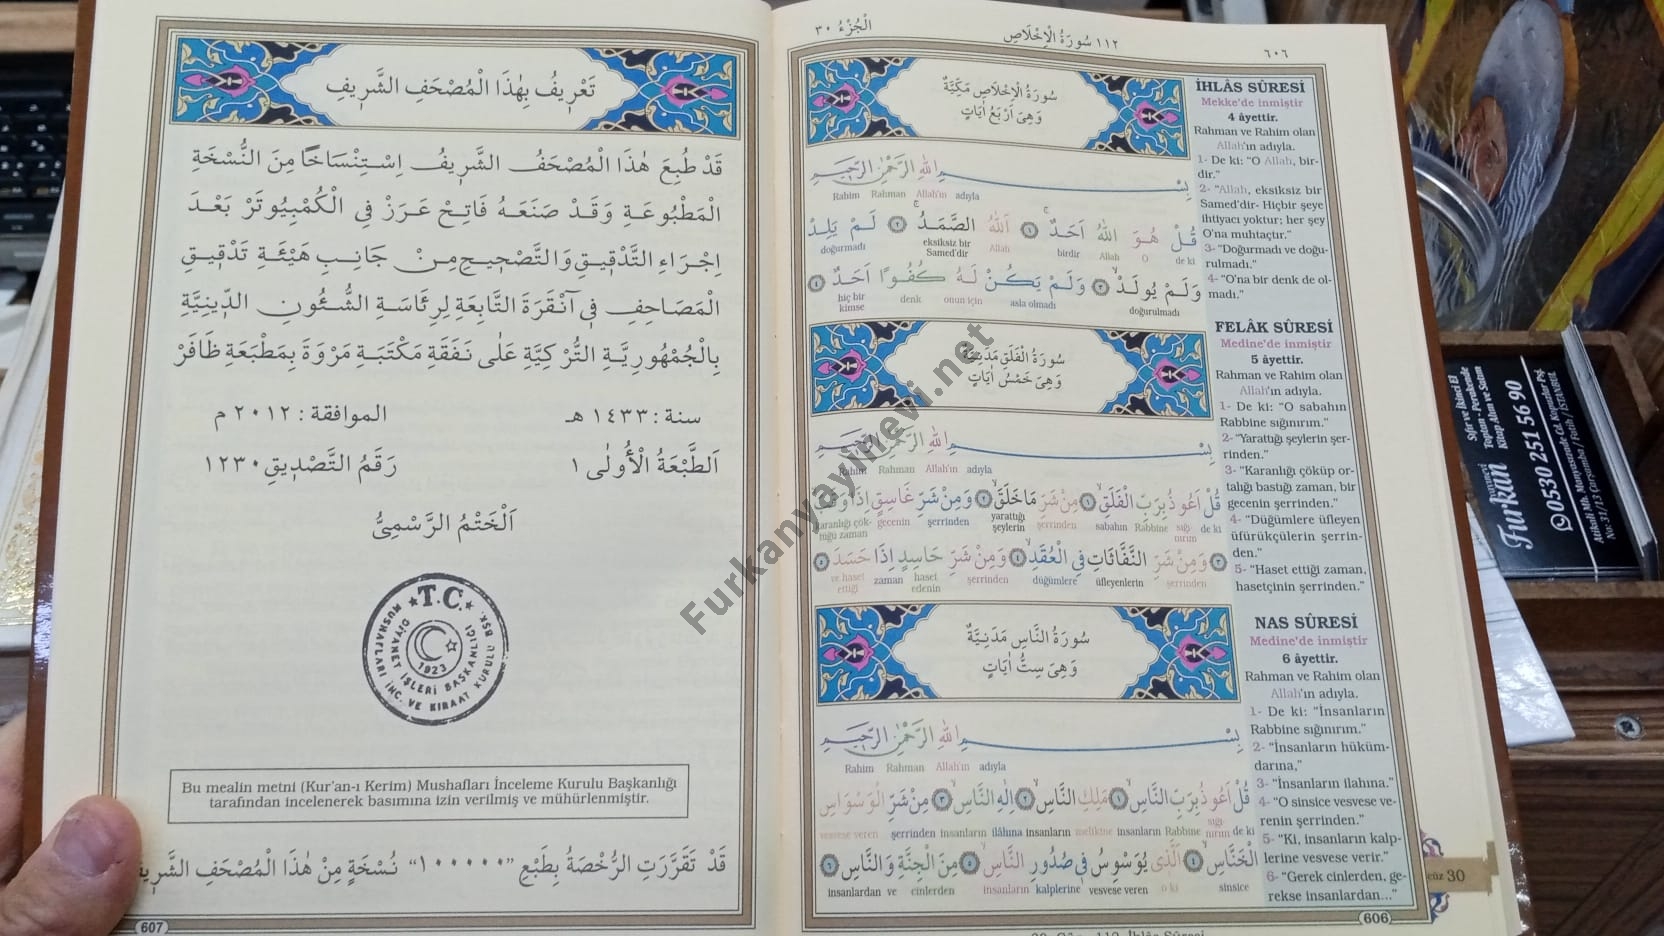 تَعْرِيفُ بِهٰذَا الْمُصْحَفِ الشَّرِيفِ
قَدْ طُبِعَ هٰذَا الْمُصْحَفُ الشَّرِيفُ اِسْتِنْسَاخًا مِنَ النُّسْخَةِ
الْمَطْبُوعَةِ وَقَدْ صَنَعَهُ فَاتِحْ عَرَزْ فِي الْكُمْبِيُوتَرْ بَعْدَ
اِجْرَاءِ التَّدْقِيقِ وَالتَّصْحِيحِ مِنْ جَانِبِ هَيْئَةِ تَدْقِيقِ
الْمَصَاحِفِ فِي آنْقَرَةَ التَّابَعَةِ لِرِئَاسَةِ الشُّئُونِ الدِّينِيَّةِ
بِالْجُمْهُورِيَّةِ التُّرْكِيَّةِ عَلٰى نَفَقَةِ مَكْتَبَةِ مَرْوَةَ بِمَطْبَعَةِ ظَافَرْ
سنة : ١٤٣٣ هـ الموافقة : ٢٠١٢ م
اَلطَّبْعَةُ الْأُولٰى ١ رَقَمُ التَّصْدِيقِ ١٢٣٠
اَلْخَتْمُ الرَّسْمِيُّ
T.C.
DİYANET İŞLERİ BAŞKANLIĞI
MUSHAFLARI İNC. VE KIRAAT KURULU BŞK.
1923
Bu mealin metni (Kur'an-ı Kerim) Mushafları İnceleme Kurulu Başkanlığı
tarafından incelenerek basımına izin verilmiş ve mühürlenmiştir.
قَدْ تَقَرَّرَتِ الرُّخْصَةُ بِطَبْعِ "١٠٠٠٠٠" نُسْخَةٍ مِنْ هٰذَا الْمُصْحَفِ
607
اَلْجُزْءُ ٣٠ ١١٢ سُورَةُ الْاِخْلَاصِ ٦٠٦
سُورَةُ الْاِخْلَاصِ مَكِّيَّةٌ
وَهِيَ اَرْبَعُ اٰيَاتٍ
بِسْمِ اللّٰهِ الرَّحْمٰنِ الرَّحِيمِ
Rahim Rahman Allah'ın adıyla
قُلْ هُوَ اللّٰهُ اَحَدٌ ١ اَللّٰهُ الصَّمَدُ ٢ لَمْ يَلِدْ
doğurmadı eksiksiz bir Samed'dir Allah birdir Allah O de ki
وَلَمْ يُولَدْ ٣ وَلَمْ يَكُنْ لَهُ كُفُوًا اَحَدٌ ٤
hiç bir kimse denk onun için asla olmadı doğurulmadı
سُورَةُ الْفَلَقِ مَدَنِيَّةٌ
وَهِيَ خَمْسُ اٰيَاتٍ
بِسْمِ اللّٰهِ الرَّحْمٰنِ الرَّحِيمِ
Rahim Rahman Allah'ın adıyla
قُلْ اَعُوذُ بِرَبِّ الْفَلَقِ ١ مِنْ شَرِّ مَا خَلَقَ ٢ وَمِنْ شَرِّ غَاسِقٍ اِذَا وَقَبَ
gecenin şerrinden yarattığı şeylerin şerrinden sabahın Rabbine sığınırım de ki
٣ وَمِنْ شَرِّ النَّفَّاثَاتِ فِي الْعُقَدِ ٤ وَمِنْ شَرِّ حَاسِدٍ اِذَا حَسَدَ ٥
ve haset ettiği zaman haset edenin şerrinden düğümlere üfleyenlerin şerrinden
سُورَةُ النَّاسِ مَدَنِيَّةٌ
وَهِيَ سِتُّ اٰيَاتٍ
بِسْمِ اللّٰهِ الرَّحْمٰنِ الرَّحِيمِ
Rahim Rahman Allah'ın adıyla
قُلْ اَعُوذُ بِرَبِّ النَّاسِ ١ مَلِكِ النَّاسِ ٢ اِلٰهِ النَّاسِ ٣ مِنْ شَرِّ الْوَسْوَاسِ
vesvese veren şerrinden insanların ilâhına insanların melikine insanların Rabbine sığınırım de ki
الْخَنَّاسِ ٤ اَلَّذِي يُوَسْوِسُ فِي صُدُورِ النَّاسِ ٥ مِنَ الْجِنَّةِ وَالنَّاسِ ٦
insanlardan ve cinlerden insanların kalplerine vesvese veren o ki sinsice
İHLÂS SÛRESİ
Mekke'de inmiştir
4 âyettir.
Rahman ve Rahim olan
Allah'ın adıyla.
1- De ki: "O Allah, bir-
dir."
2- "Allah, eksiksiz bir
Samed'dir- Hiçbir şeye
ihtiyacı yoktur; her şey
O'na muhtaçtır."
3- "Doğurmadı ve doğu-
rulmadı."
4- "O'na bir denk de ol-
madı."
FELÂK SÛRESİ
Medine'de inmiştir
5 âyettir.
Rahman ve Rahim olan
Allah'ın adıyla.
1- De ki: "O sabahın
Rabbine sığınırım."
2- "Yarattığı şeylerin şer-
rinden."
3- "Karanlığı çöküp or-
talığı bastığı zaman, bir
gecenin şerrinden."
4- "Düğümlere üfleyen
üfürükçülerin şerrin-
den."
5- "Haset ettiği zaman,
hasetçinin şerrinden."
NAS SÛRESİ
Medine'de inmiştir
6 âyettir.
Rahman ve Rahim olan
Allah'ın adıyla.
1- De ki: "İnsanların
Rabbine sığınırım."
2- "İnsanların hüküm-
darına,"
3- "İnsanların ilahına."
4- "O sinsice vesvese ve-
renin şerrinden."
5- "Ki, insanların kalp-
lerine vesvese verir."
6- "Gerek cinlerden, ge-
rekse insanlardan..."
cüz 30
606
Furkanyayinevi.net
Furkan
Yayınevi
Sıfır ve İkinci El
Toptan - Perakende
Kitap Alım ve Satım
0530 251 56 90